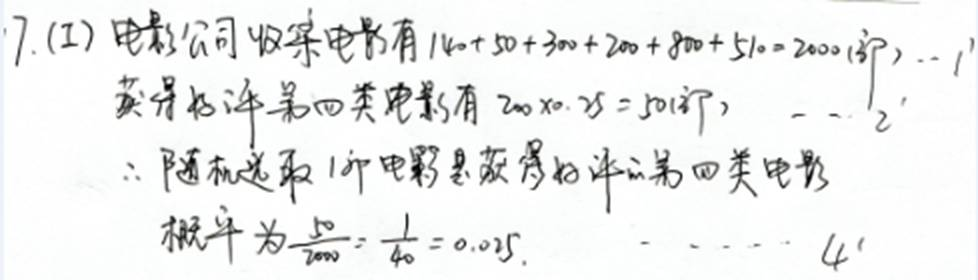 7.(I) 电影公司收集电影有 140+50+300+200+800+510=2000(部) ...1'
获得好评第四类电影有 200×0.25=50(部) ...2'
∴ 随机选取1部电影是获得好评的第四类电影
概率为 50/2000 = 1/40 = 0.025. ......4'